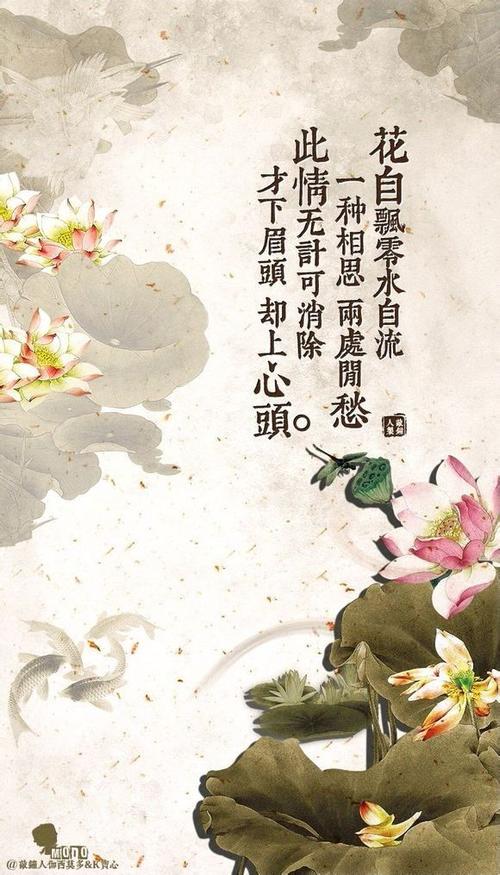 花自飄零水自流
一种相思 兩處閒愁
此情无計可消除
才下眉頭 却上心頭。
MODO
@敲鐘人伽西莫多&K寶心